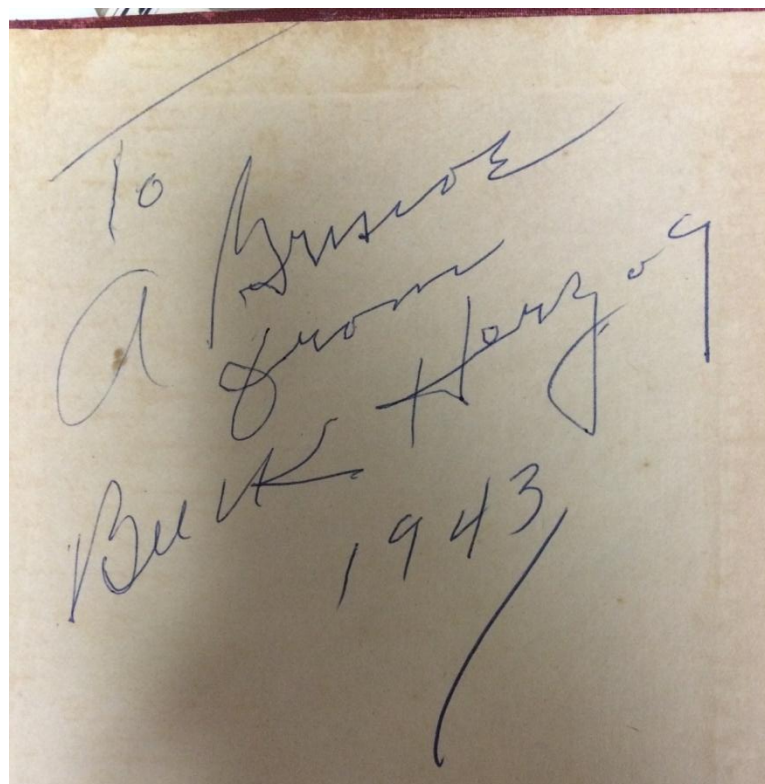 To
A Briscoe
from
Buck Herzog
1943